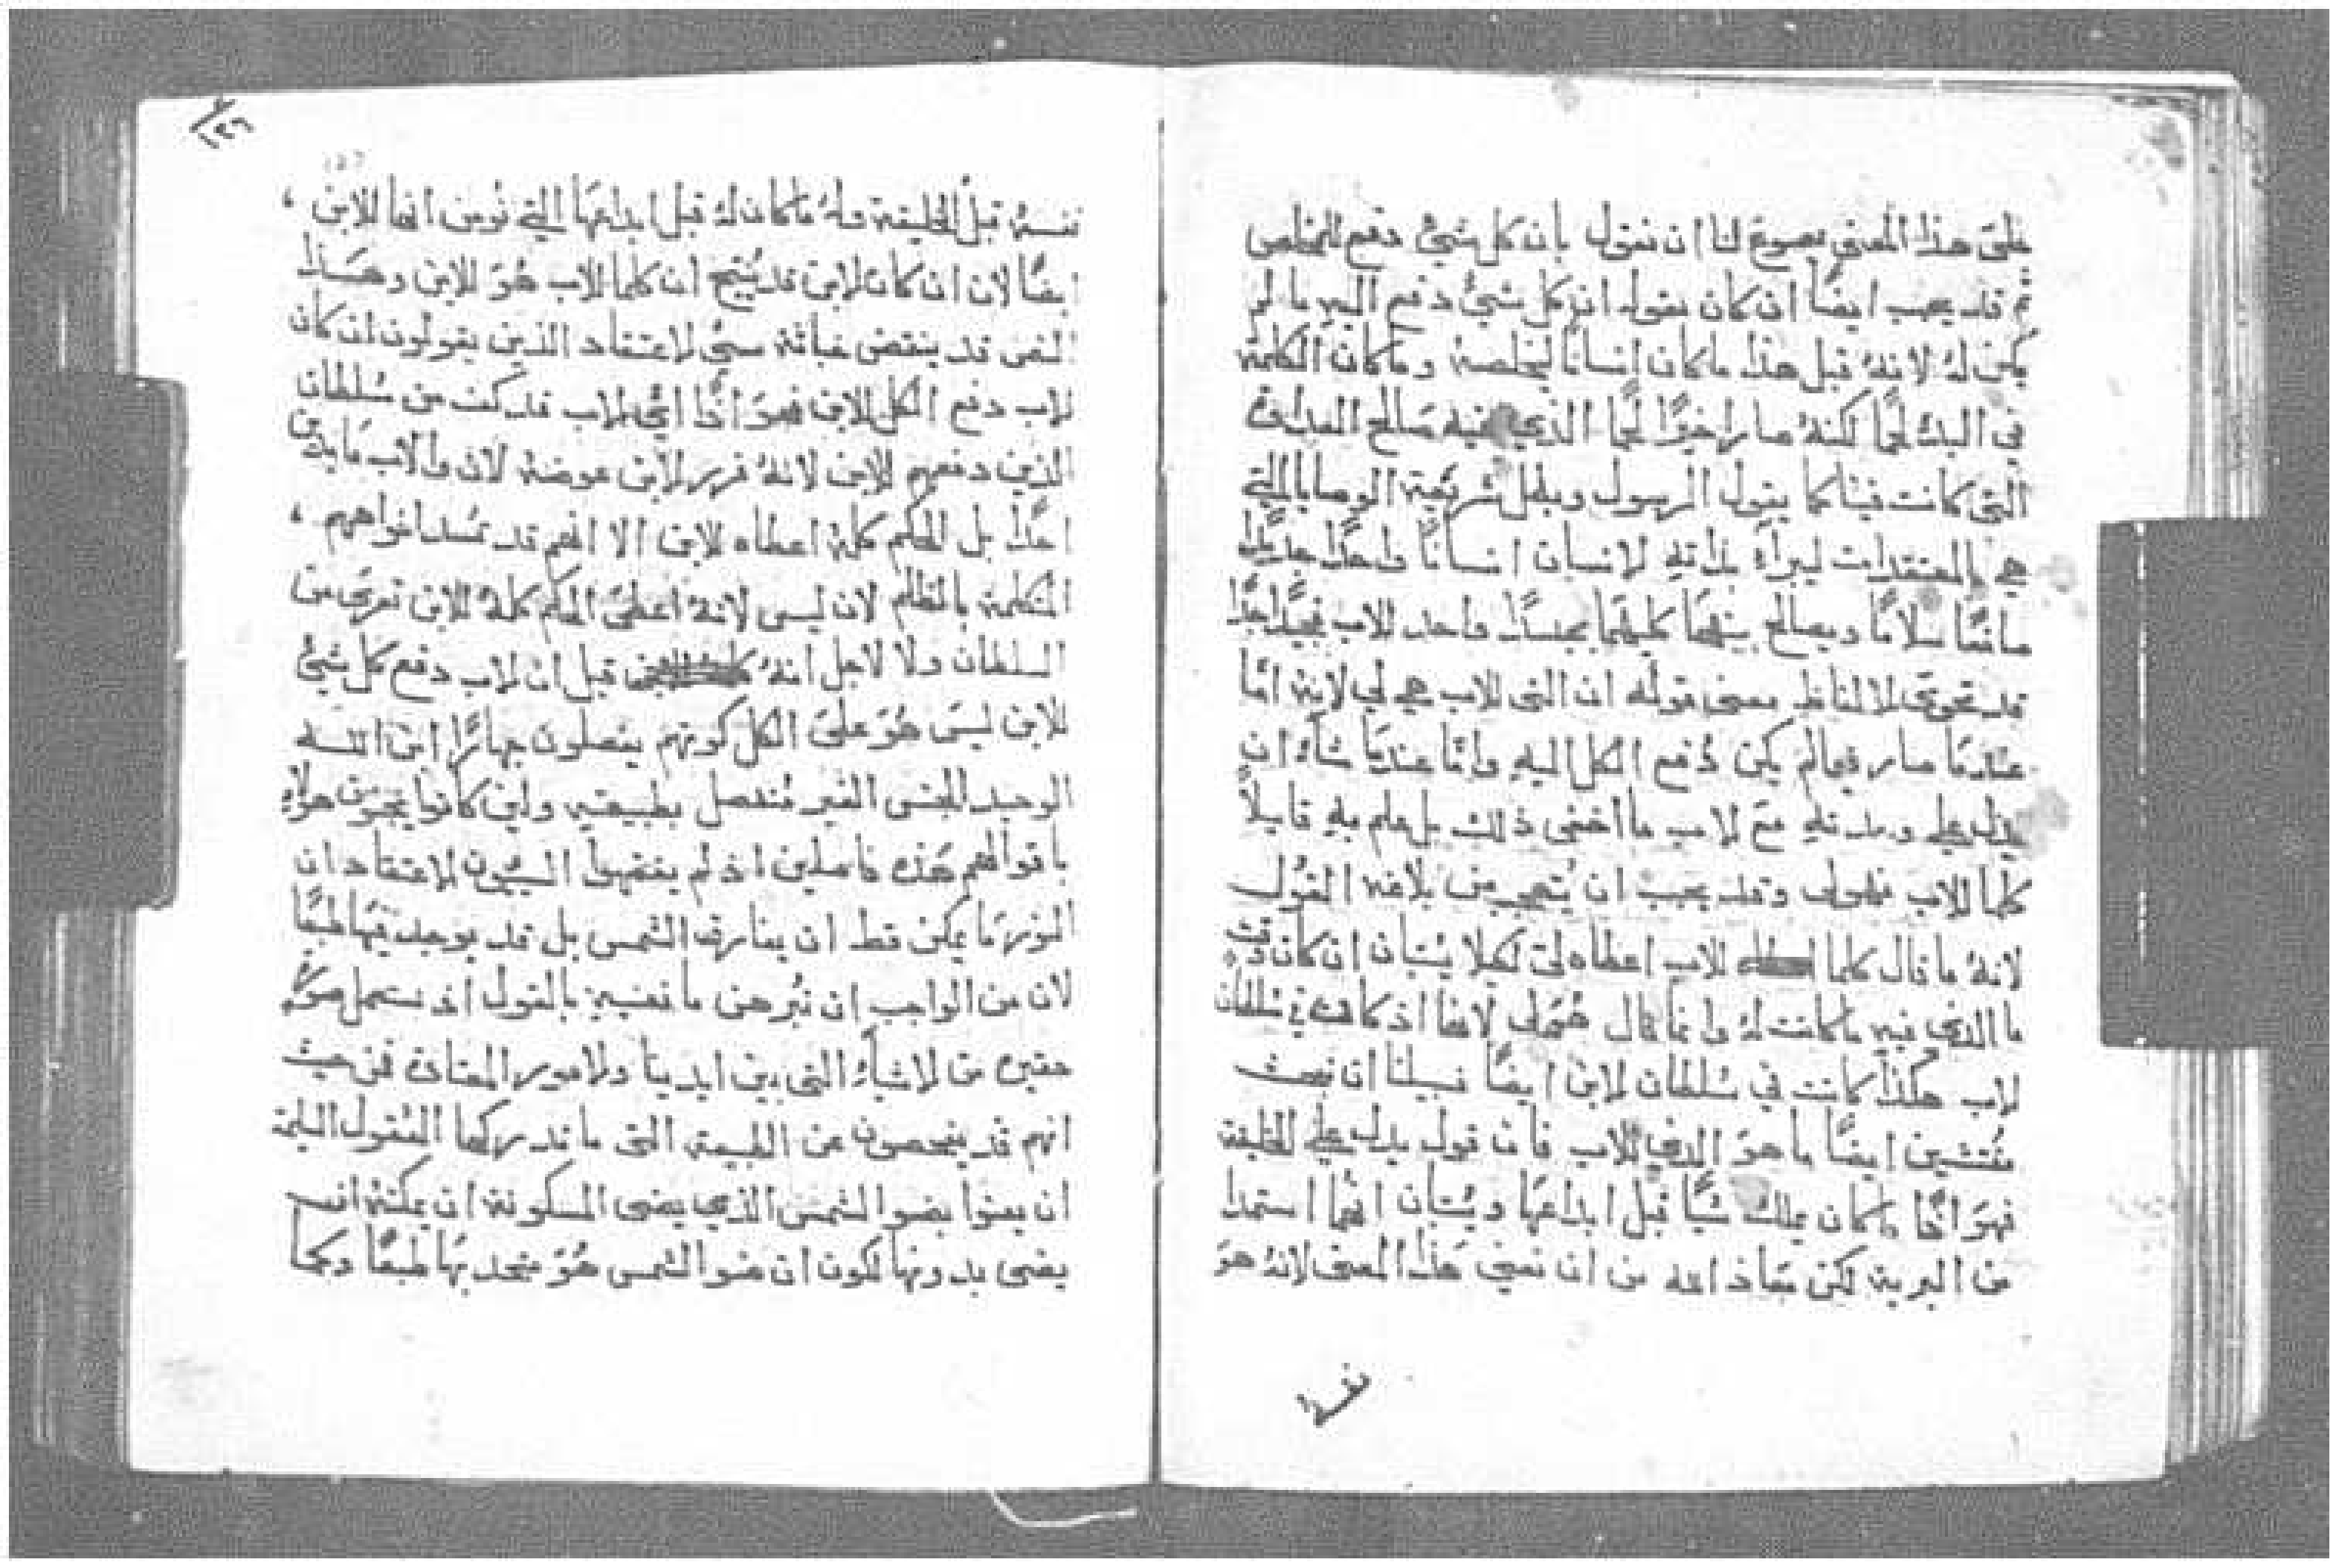 على هذا المعنى يصوغ لنا ان نقول بان كل شيء دفع للمخلص
ثم قد يجب ايضًا ان كان يقول ان كل شيء دفع اليه ما لم
يكن له لانه قبل هذا ما كان انسانًا ليخلصه وما كان الكلمة
في البدء لحمًا لكنه صار اخيرًا لحمًا الذي فيه صالح العداوة
التي كانت فينا كما يقول الرسول وبطل شريعة الوصايا التي
هي بالمعتقدات ليبرأ بذاته لانسان انسانًا واحدًا جديدًا
صانعًا سلامًا ويصالح بينهما كليهما بجسدًا واحد للاب
قد تحوي الالفاظ معنى قوله ان التي للاب هي لي لانه امّا
عندما صار فيما لم يكن دُفع الكل اليه وامّا عندما شاء ان
مع لاب ما اخفى ذلك بل علم به قايلاً
كلما للاب فهو لي وقد يجب ان يُتعجب من بلاغة القول
لانهُ ما قال كلما للاب اعطاه لي لكيلا يُستبان ان كان وقت
ما الذي فيه ما كانت له وانما قال هُم لي لانها اذ كانت في سلطان
لاب هكذا كانت في سُلطان لابن ايضًا فسبيلنا ان نبحث
مُفتشين ايضًا ما هو الذي للاب فان قول يدل على الخليقة
فهوَ اذًا ما كان يملك شيًا قبل ابداعها ويُستبان انهُما استمدا
من البرية لكن معاذ الله من ان نعني هذا المعنى لانهُ هوَ
نفسه
١٣٦
نفسهُ قبل الخليقة وله ما كان لهُ قبل ابداعها التي نُومن انها للابن
ايضًا لان ان كان لابن قد يُنتج ان كلما للاب هُوَ للابن وهذا
المعنى قد ينقض خباثة سيئي لاعتقاد الذين يقولون ان كان
لاب دفع الكل للابن فهوَ اذًا اعني لاب قد كف من سُلطان
الذين دفعهم للابن لانهُ قرر لابن عوضهُ لان والاب ما يدين
احدًا بل الحكم كلهُ اعطاه للابن الا انهم قد تسُد افواههم
المتكلمة بالظلم لان ليس لانهُ اعطى الحكم كلهُ للابن تعرى من
السلطان ولا لاجل انهُ قيل ان لاب دفع كل شيء
للابن ليسَ هُوَ على الكل كونهم يفصلون جهارًا ابن الله
الوحيد الجنس الغير مُنفصل بطبيعته ولين كانوا هولاء
باقوالهم هذه فاصلين اذ لم يفقهوا السيون لاعتقاد ان
النور ما يمكن قط ان يفارق الشمس بل قد يوجد فيها طبعًا
لان من الواجب ان نُبرهن ما نعنيه بالقول اذ نستعمل صورة
حقيره من لاشياء التي بين ايدينا ولامور المعتادة فمن حيث
انهم قد يفحصون عن الطبيعة التي ما تدركها العُقول السليمة
ان يعنوا بضو الشمس الذي يضى المسكونة ان يمكنهُ ان
يضى بدونها لكون ان ضو الشمس هُوَ متحد بها طبعًا وكما